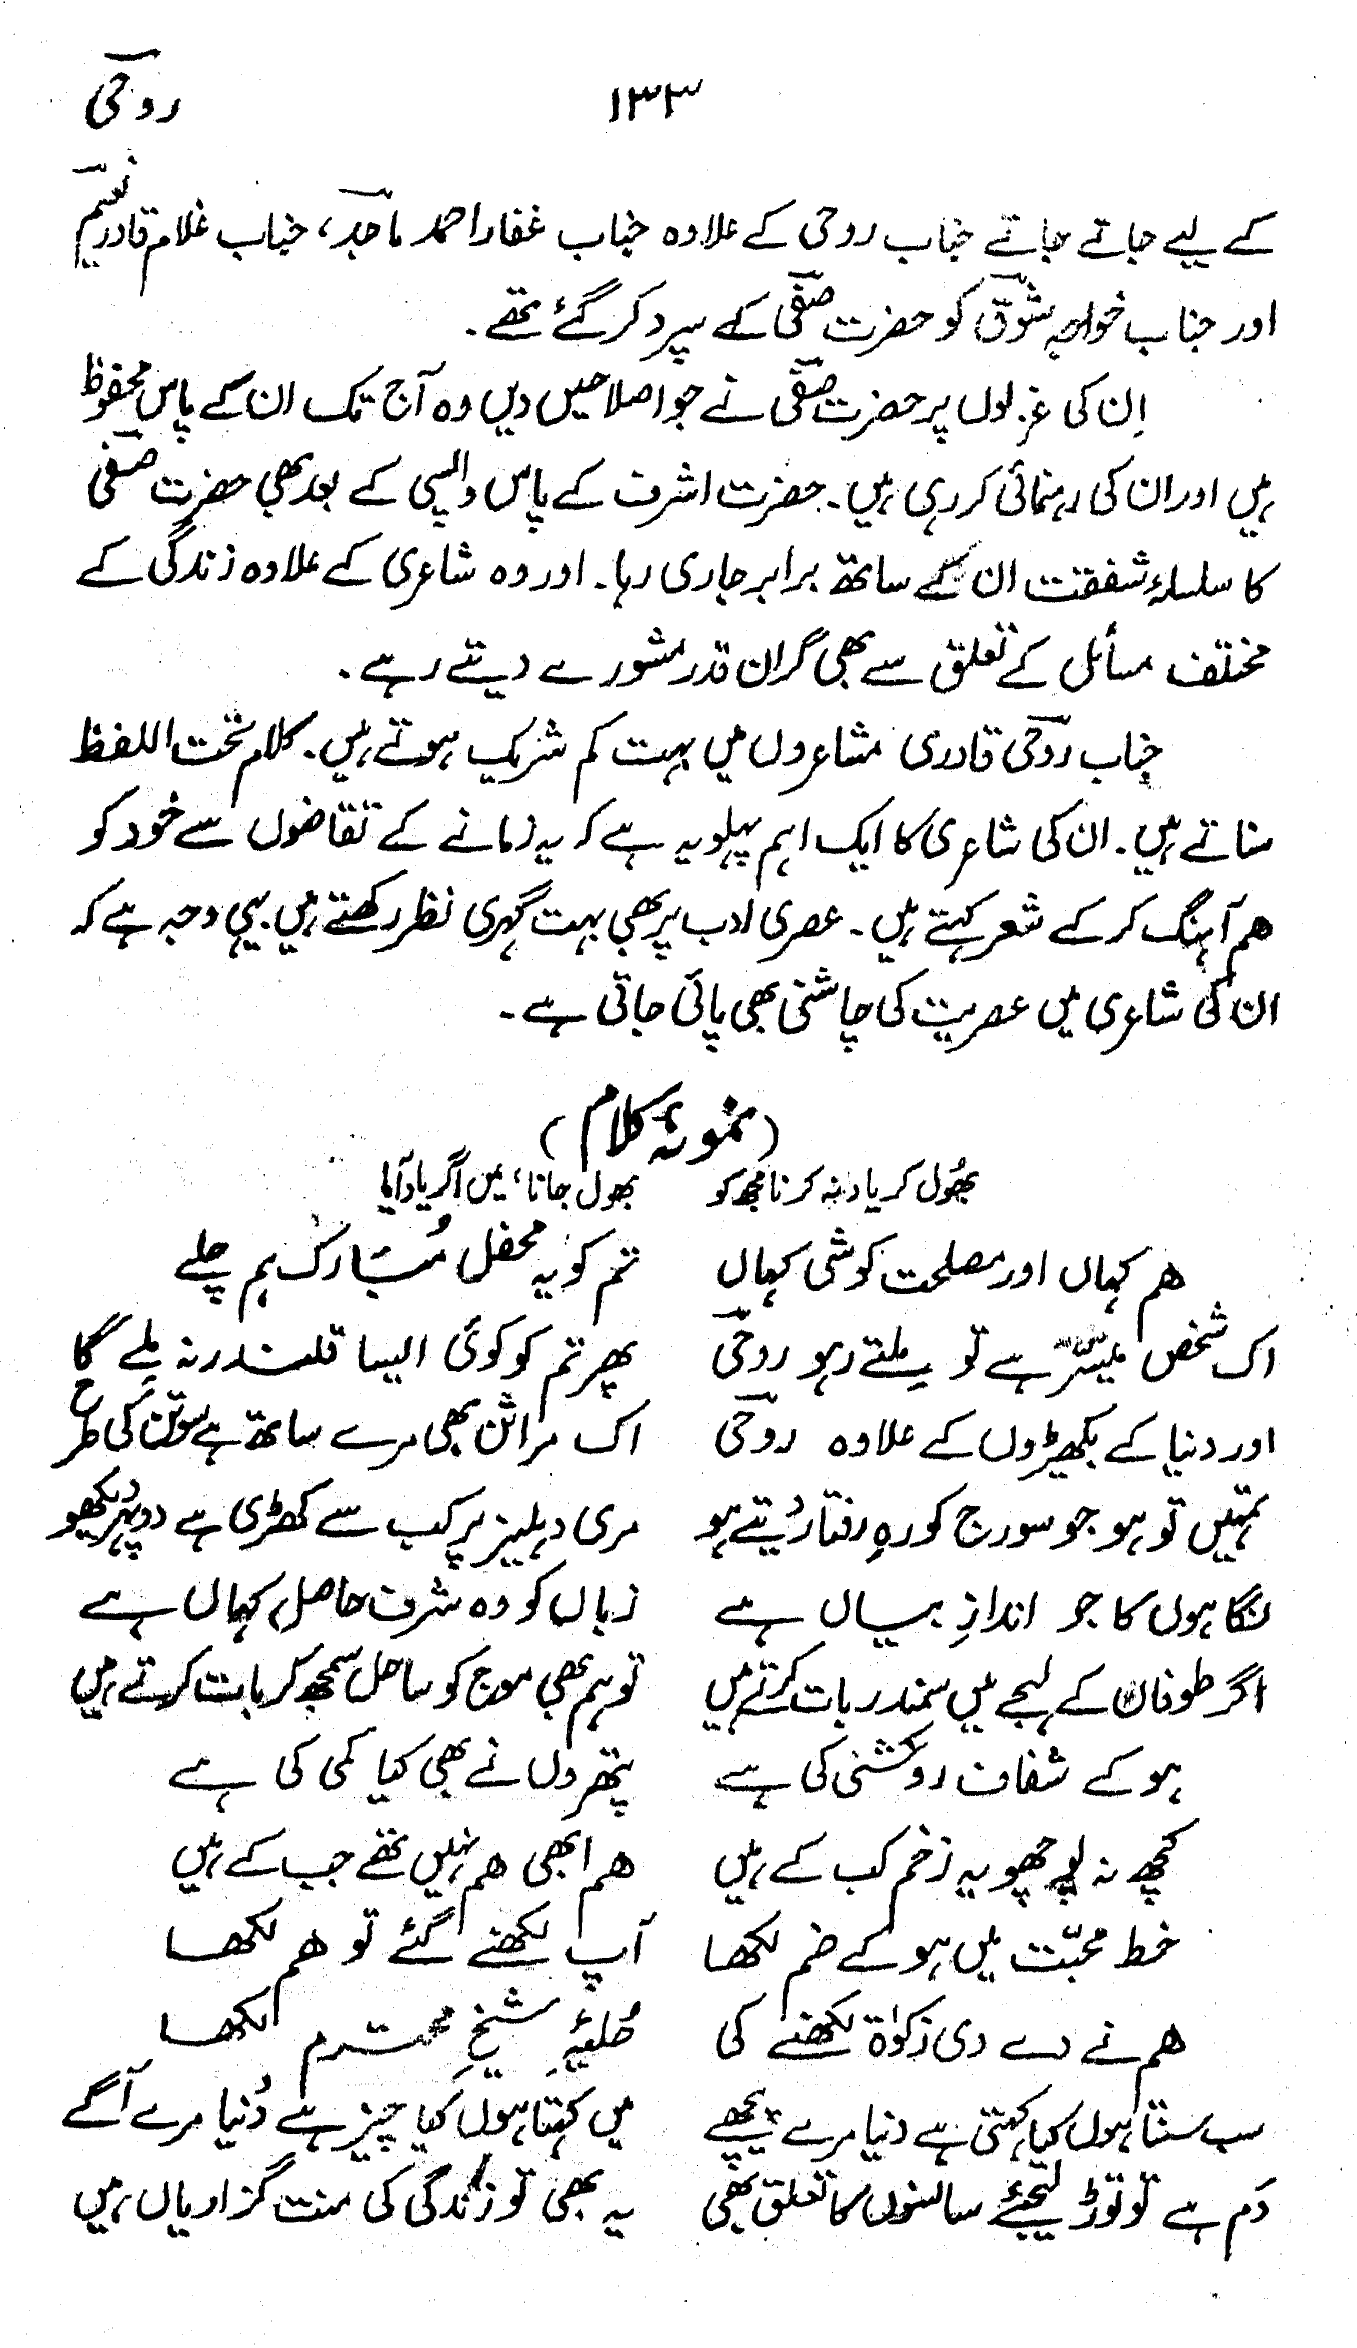 روحی ۱۳۳
کے لیے جاتے جاتے جناب روحی کے علاوہ جناب غفار احمد ماجد، جناب غلام قادر نعیم
اور جناب خواجہ شوق کو حضرت صفی کے سپرد کر گئے تھے۔
اِن کی غزلوں پر حضرت صفی نے جو اصلاحیں دیں وہ آج تک ان کے پاس محفوظ
ہیں اور ان کی رہنمائی کر رہی ہیں۔ حضرت اشرف کے پاس واپسی کے بعد بھی حضرت صفی
کا سلسلۂ شفقت ان کے ساتھ برابر جاری رہا۔ اور وہ شاعری کے علاوہ زندگی کے
مختلف مسائل کے تعلق سے بھی گران قدر مشورے دیتے رہے۔
جناب روحی قادری مشاعروں میں بہت کم شریک ہوتے ہیں۔ کلام تحت اللفظ
سناتے ہیں۔ ان کی شاعری کا ایک اہم پہلو یہ ہے کہ یہ زمانے کے تقاضوں سے خود کو
ہم آہنگ کر کے شعر کہتے ہیں۔ عصری ادب پر بھی بہت گہری نظر رکھتے ہیں یہی وجہ ہے کہ
ان کی شاعری میں عصریت کی چاشنی بھی پائی جاتی ہے۔
(نمونۂ کلام)
بھُول کر یاد نہ کرنا مجھ کو بھول جانا، میں اگر یاد آیا
ہم کہاں اور مصلحت کوشی کہاں تم کو یہ محفل مُبارک ہم چلے
اک شخص میسّر ہے تو مِلتے رہو روحی پھر تم کو کوئی ایسا قلندر نہ مِلے گا
اور دنیا کے بکھیڑوں کے علاوہ روحی اک مراثن بھی مرے ساتھ ہے سوتن کی طرح
تمہیں تو ہو جو سورج کو رہِ رفتار دیتے ہو مری دہلیز پر کب سے کھڑی ہے دوپہر دیکھو
نگاہوں کا جو اندازِ بیاں ہے زباں کو وہ شرف حاصل کہاں ہے
اگر طوفان کے لہجے میں سمندر بات کرتے ہیں تو ہم بھی موج کو ساحل سمجھ کر بات کرتے ہیں
ہو کے شفاف روکشنی کی ہے پتھروں نے بھی کیا کمی کی ہے
کچھ نہ پوچھو یہ زخم کب کے ہیں ہم ابھی ہم نہیں تھے جب کے ہیں
خط محبّت میں ہو کے ضم لکھا آپ لکھنے گئے تو ہم لکھا
ہم نے دے دی زکوٰۃ لکھنے کی حُلیۂ شیخِ محترم لکھا
سب سنتا ہوں کیا کہتی ہے دنیا مرے پیچھے میں کہتا ہوں کیا چیز ہے دُنیا مرے آگے
دَم ہے تو توڑ لیجئے سانسوں کا تعلق بھی یہ بھی تو زندگی کی منت گزاریاں ہیں